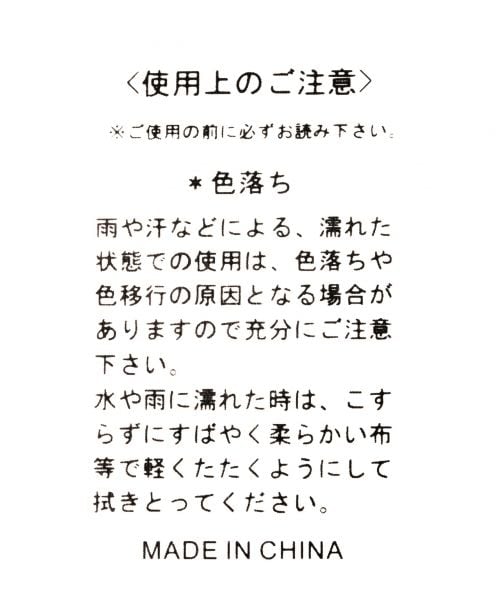 〈使用上のご注意〉
※ご使用の前に必ずお読み下さい。
＊色落ち
雨や汗などによる、濡れた
状態での使用は、色落ちや
色移行の原因となる場合が
ありますので充分にご注意
下さい。
水や雨に濡れた時は、こす
らずにすばやく柔らかい布
等で軽くたたくようにして
拭きとってください。
MADE IN CHINA